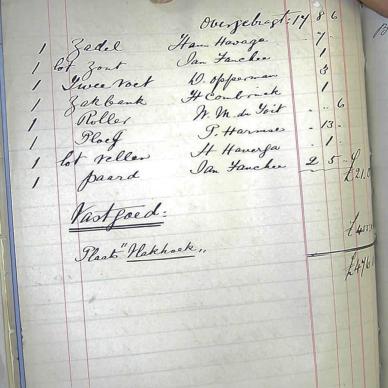 Overgebragt: 17 8 6
1 Zadel Hans Havaga - 7 -
1 lot Zout Jan Fanchee 1
1 Twee voet D. Opperman 3
1 Zakbank H Conbrink 1
1 Roller W. M. du Toit - - 6
1 Ploeg P. Harmse - 13 -
1 lot vellen H Haverga - 1 -
1 paard Jan Fanchee 2 5 -
Vastgoed:
Plaats "Vlakhoek"